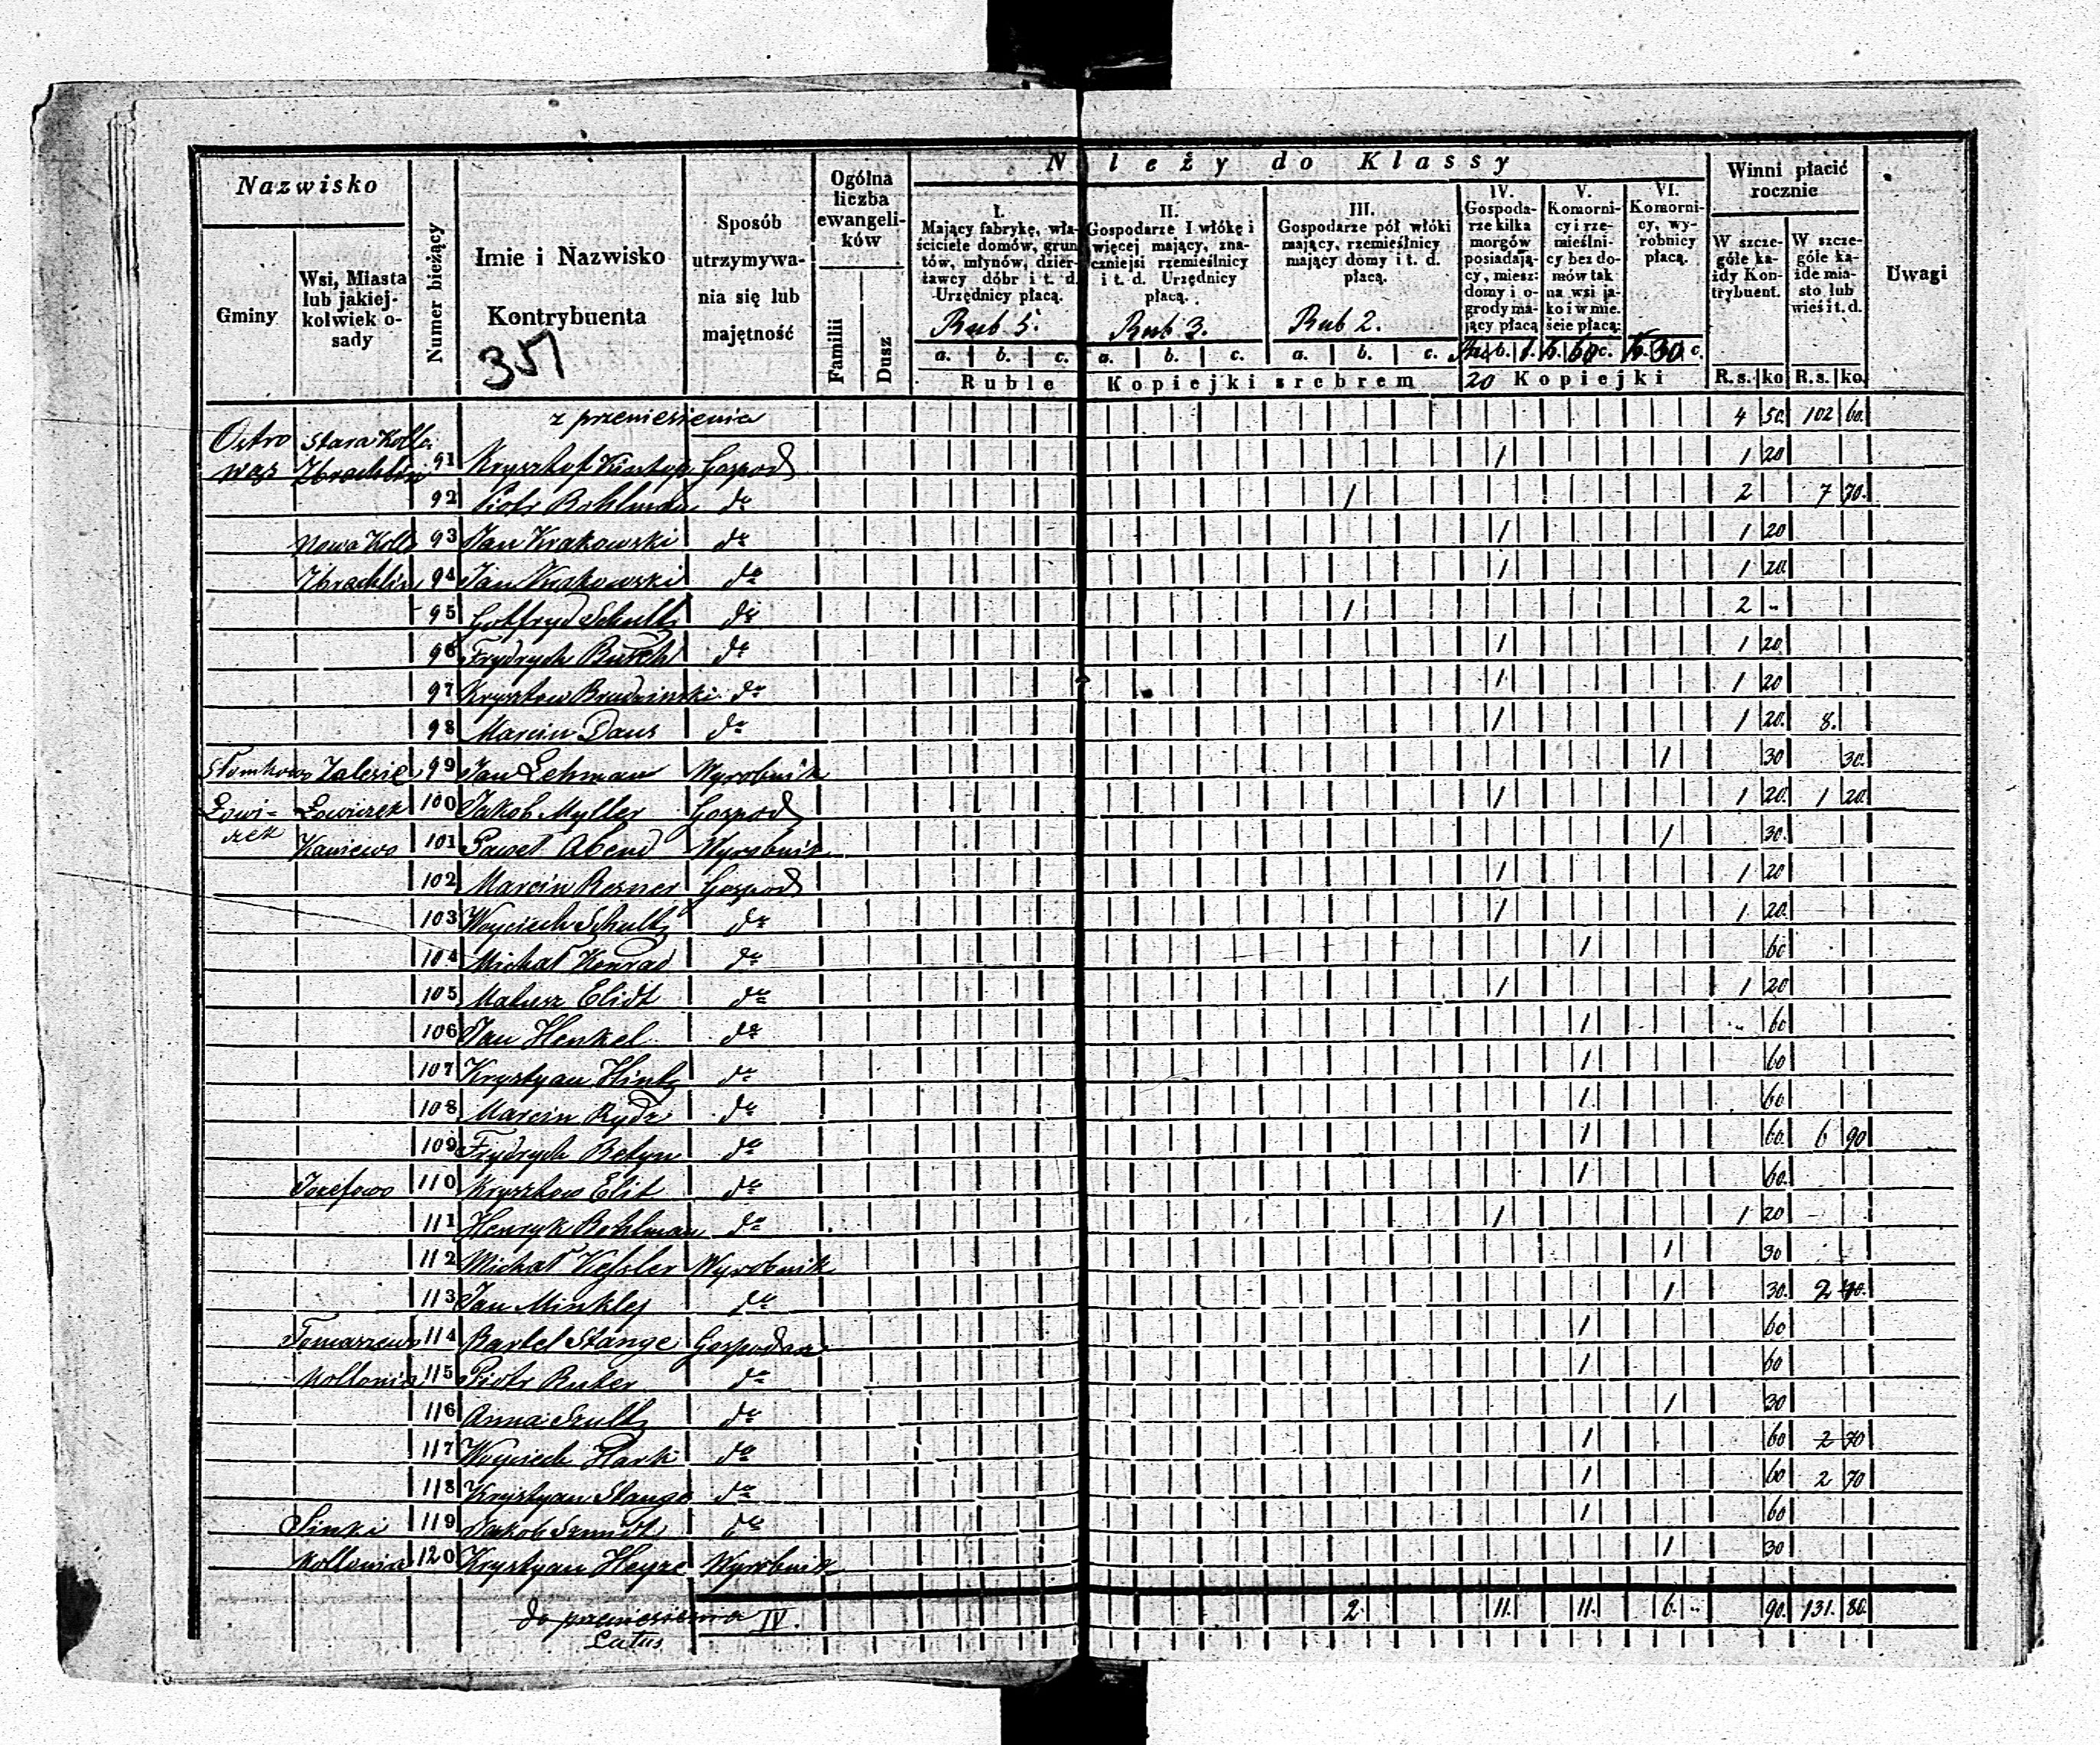 Nazwisko
Gminy
Wsi, Miasta lub jakiejkolwiek osady
Numer bieżący
Imie i Nazwisko
Kontrybuenta
351
Sposób utrzymywania się lub majętność
Ogólna liczba ewangelików
Familii
Dusz
Należy do Klassy
I. Mający fabrykę, właściciele domów, gruntów, młynów, dzierżawcy dóbr i t. d. Urzędnicy płacą.
Rub 5.
II. Gospodarze 1 włókę i więcej mający, znaczniejsi rzemieślnicy i t. d. Urzędnicy płacą.
Rub 3.
III. Gospodarze pół włóki mający, rzemieślnicy mający domy i t. d. płacą.
Rub 2.
IV. Gospodarze kilka morgów posiadający, miesz: domy i ogrody mający płacą
V. Komornicy i rzemieślnicy bez domów tak na wsi jako i w mieście płacą:
k. 60
VI. Komornicy, wyrobnicy płacą.
k. 30
Winni płacić rocznie
W szczególe każdy Kontrybuent.
W szczególe każde miasto lub wieś i t. d.
Uwagi
a. b. c. a. b. c. a. b. c.
Ruble Kopiejki srebrem 20 Kopiejki R. s. ko R. s. ko.
z przeniesienia 4 50 102 60.
Ostrowąs Stara Koll. Zbrachlin 91 Krysztof Gospod 1 1 20
92 Piotr do 1 2 7 70.
Nowa Koll 93 Jan Krakowski do 1 1 20
Zbrachlin 94 Jan Krakowski do 1 1 20
95 Gotfryd Schultz do 1 2 "
96 Frydrych Busch do 1 1 20
97 Krysztow Brudzinski do 1 1 20
98 Marcin Daus do 1 1 20. 8.
Słomkowo Zalesie 99 Jan Lehman Wyrobnik 1 30 30.
Łowiczek Łowiczek 100 Jakob Myller Gospod 1 1 20 1 20.
Kaniewo 101 Paweł Abend Wyrobnik 1 30.
102 Marcin Resner Gospod 1 1 20
103 Woyciech Schultz do 1 1 20
104 Michał Konrad do 1 60
105 Matusz Elidt do 1 1 20
106 Jan Henkel do 1 " 60
107 Krystyan Hintz do 1 60
108 Marcin Rydz do 1 60
109 Frydrych Betyn do 1 60. 6 90
Jozefowo 110 Krysztow Elit do 1 60.
111 Henryk Bohlman do 1 1 20
112 Michał Kessler Wyrobnik 1 30
113 Jan do 1 30. 2 40.
Tomaszewo 114 Bartel Stange Gospodarz 1 60
Kollonia 115 Piotr Ruter do 1 60
116 Anna Szultz do 1 30
117 Woyciech Hark do 1 60 2 70
118 Krystyan Stange do 1 60 2 70
Sinki 119 Jakob Szmidt do 1 60
Kollonia 120 Krystyan Heyze Wyrobnik 1 30
do przeniesienia IV. 2 11. 11. 6. " 90. 131. 80.
Latus